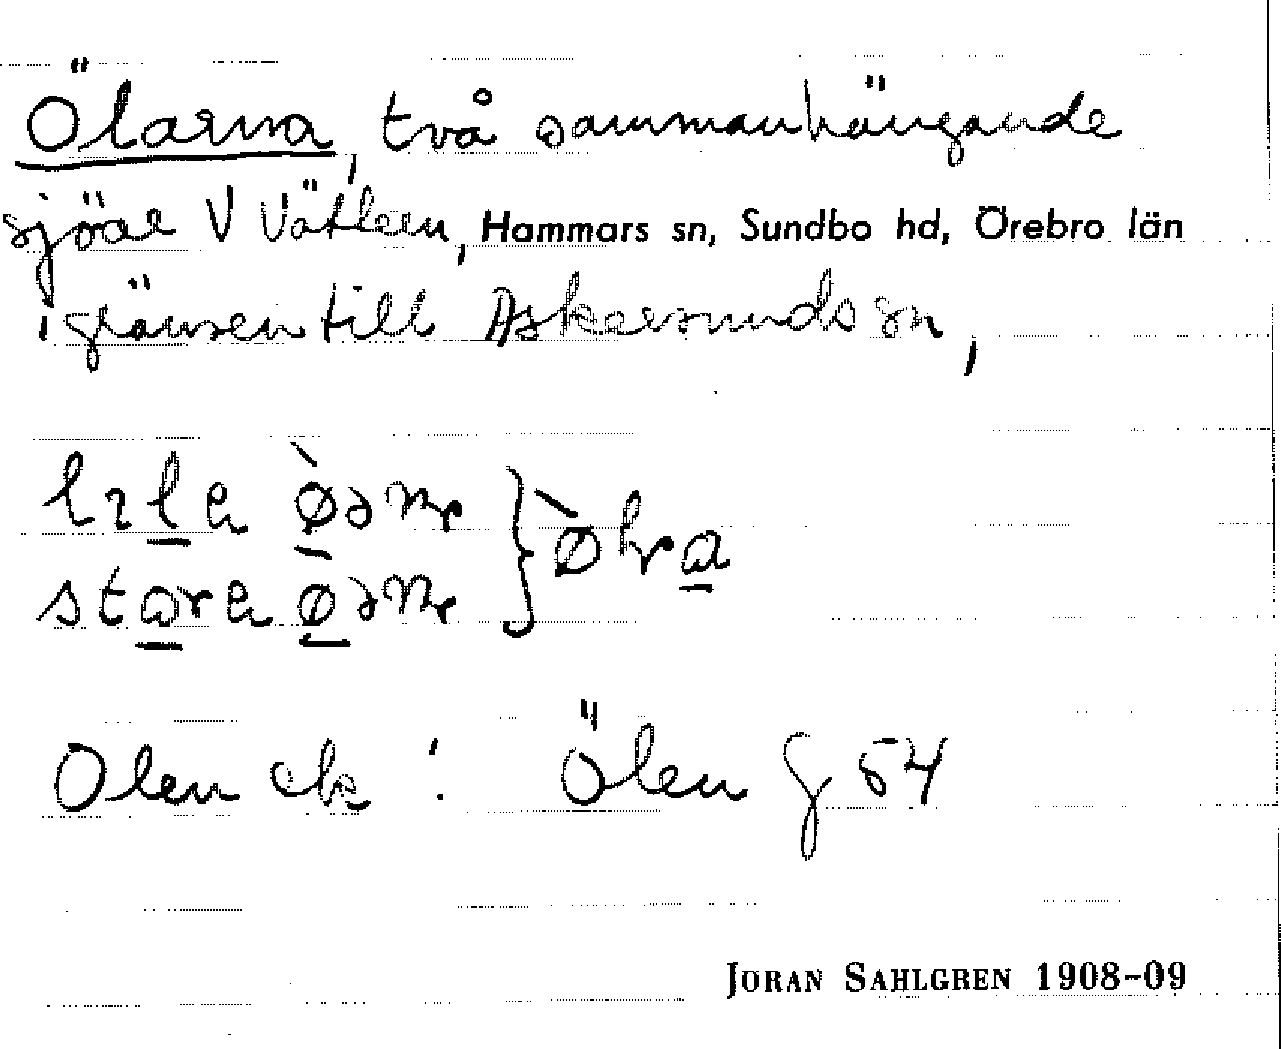 Ölarna, två sammanhängande
sjöar V Vättern, Hammars sn, Sundbo hd, Örebro län
i gränsen till Askersunds sn,
lɩla
stora
Ölen g 54
JÖRAN SAHLGREN 1908-09